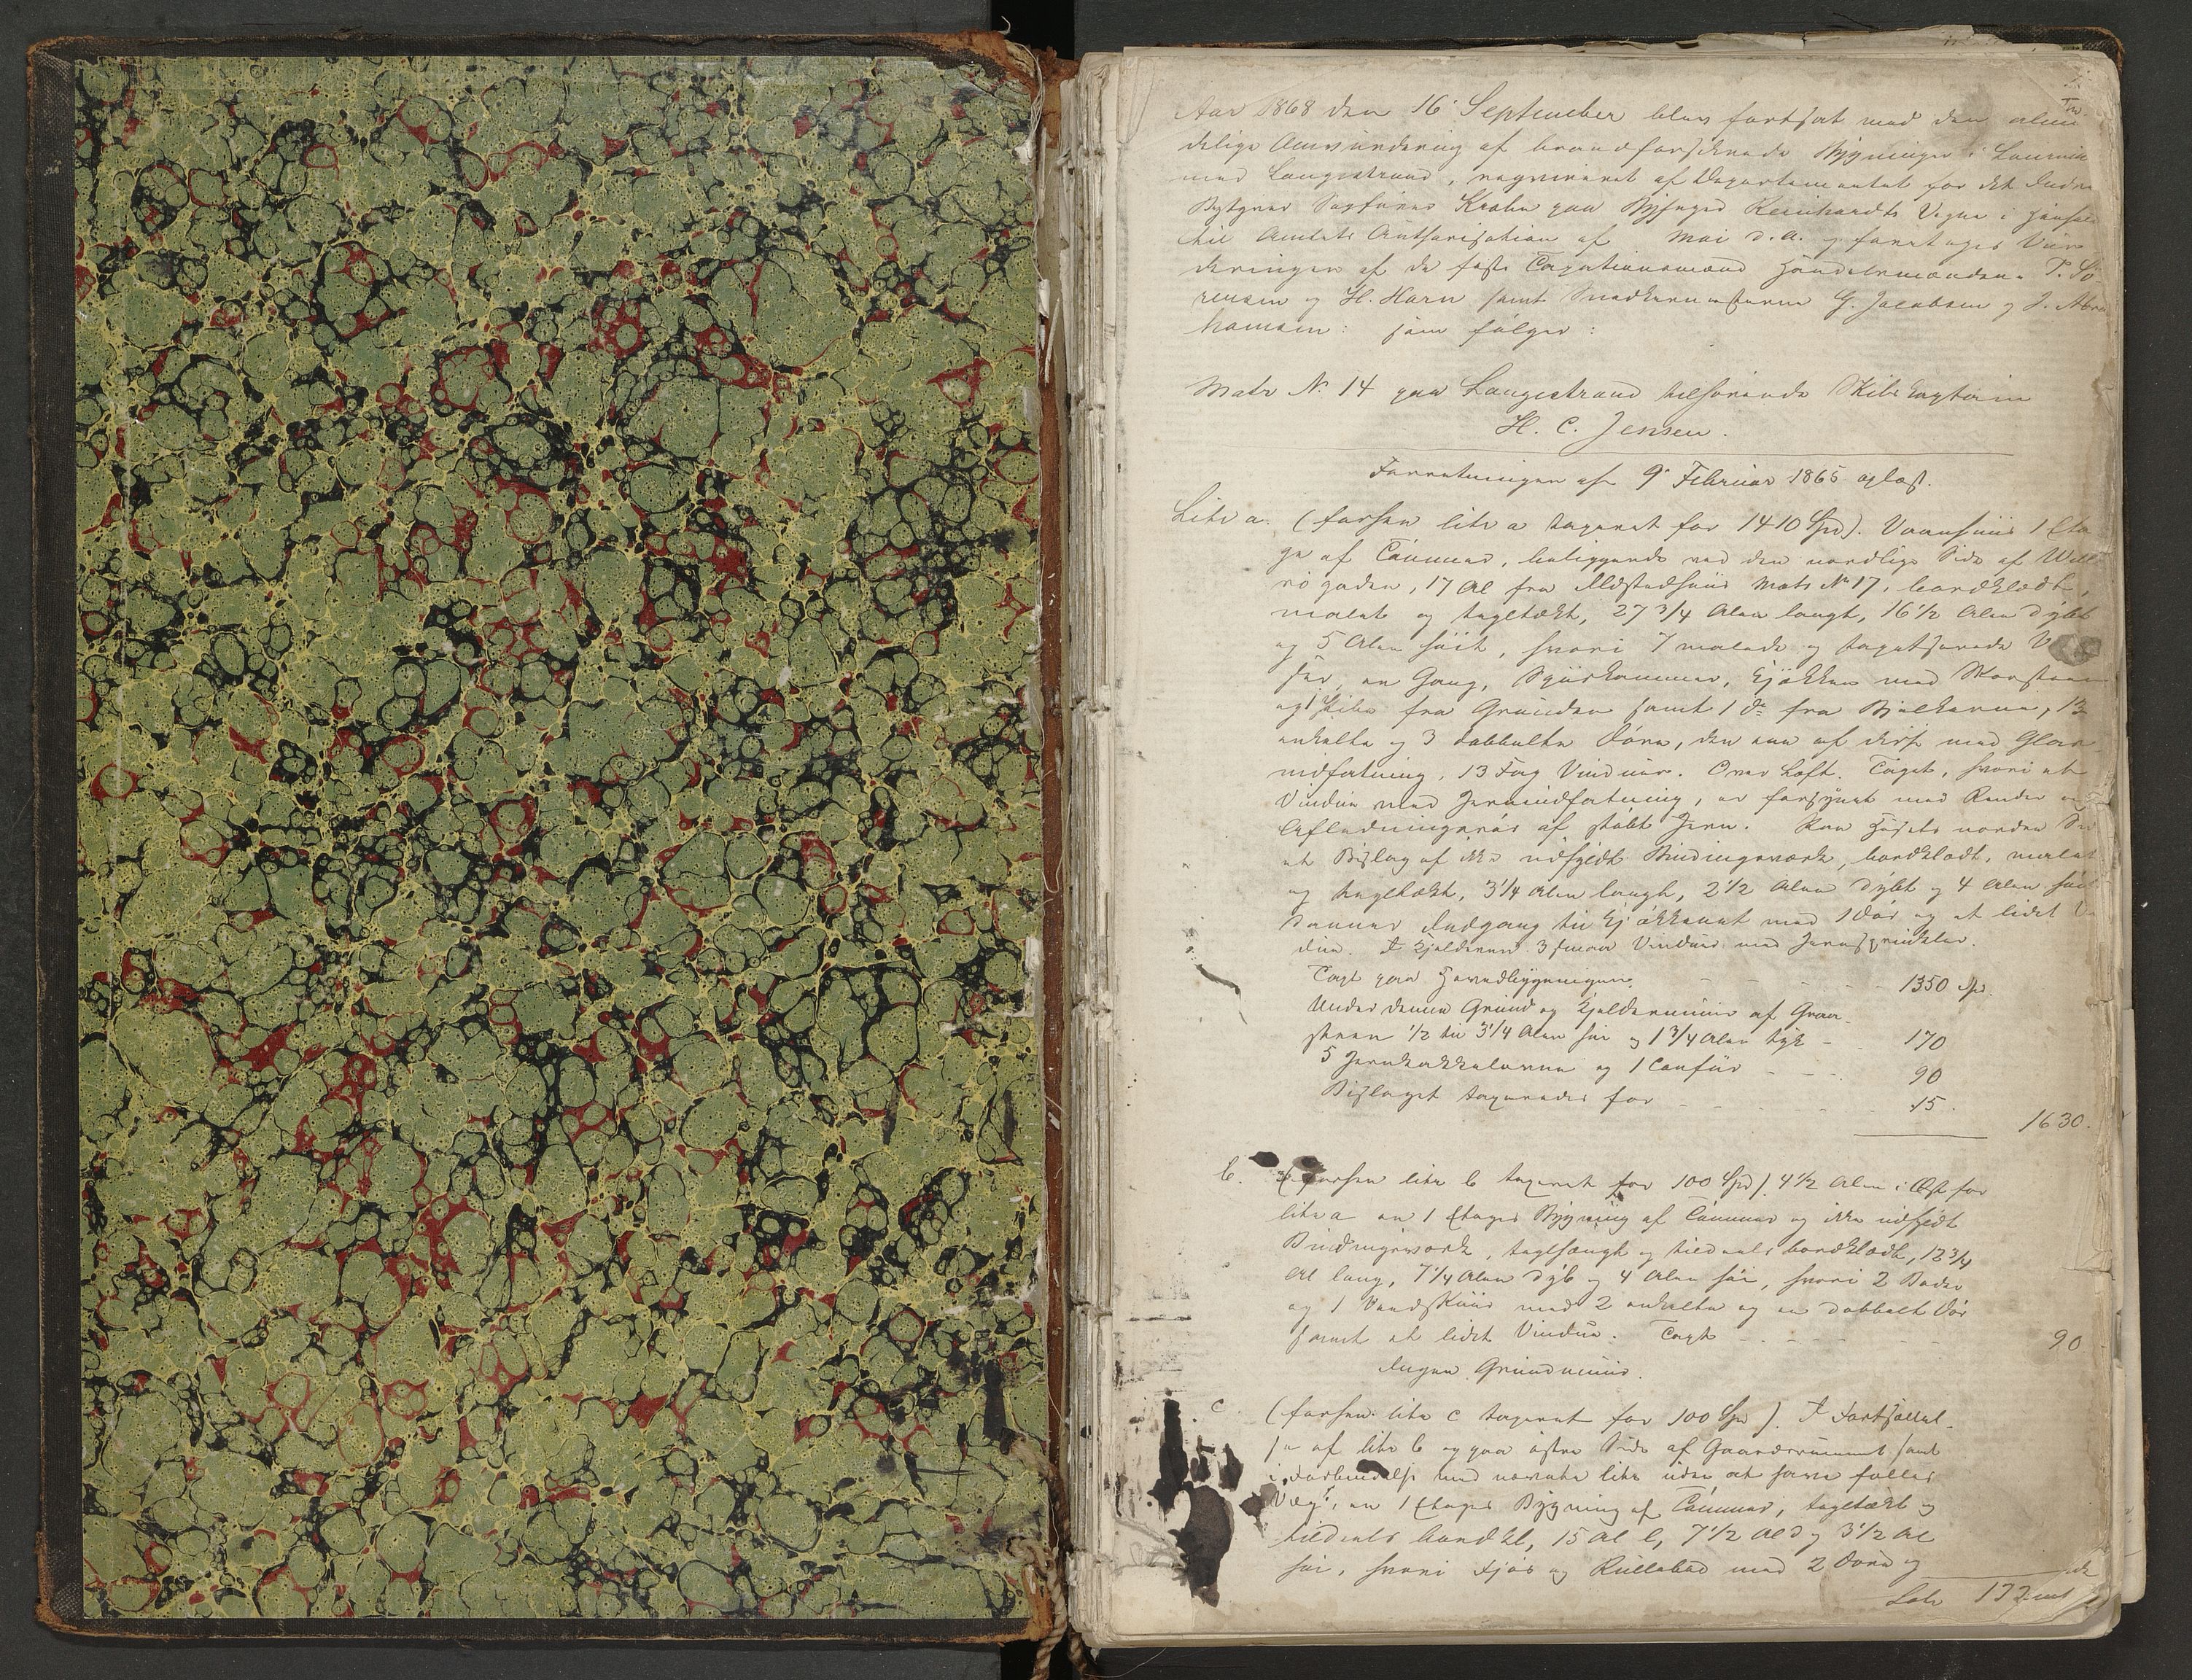 Aar 1868 den 16 September blev fortsat med den almin
delige Omvurdering af brandforsikrede Bygninger i Laurvig
med Langestrand, requireret af Departementet for det Indre
Bestyrer Sagfører Krohn paa Byfoged Reinhardts Vegne i Henhold
til Amtets Authorisation af Mai d.A. og foretoges Vur
deringen af de faste Taxationsmænd Handelsmændene T. Sø
rensen og H. Horn samt Snedkermestrene G. Jacobsen og J. Abra
hamsen: som følger:
Matr No 14 paa Langestrand tilhørende Skibscaptain
H. C. Jensen.
Forretningen af 9 Februar 1865 oplæst.
Litr a. (forhen litr a taxeret for 1410 Spd). Vaanhuus 1 Eta
ge af Tømmer, beliggende ved den nordlige Side af
gaden, 17 Al fra Ildstedhuus Matr No 17, bordklædt,
malet og tagtækt, 27 3/4 Alen langt, 16 1/2 Alen dybt
og 5 Alen høit, hvori 7 malede og tapetserede
ser, en Gang, Spiiskammer, Kjøkken med Skorsteen
og Pibe fra Grunden samt 1 do fra Bjelkerne, 13
enkelte og 3 dobbelte Døre, den ene af disse med Glas
indfatning, 13 Fag Vinduer. Over Loft. Taget, hvori et
Vindue med Jernindfatning, er forsynet med Render og
Afledningsrør af støbt Jern. Paa Husets nordre Side
et Bislag af ikke udfyldt Bindingsværk, bordklædt, malet
og tagtækt, 3 1/4 Alen langt, 2 1/2 Alen dybt og 4 Alen høit
Danner Indgang til Kjøkkenet med 1 Dør og et lidet Vin
due. I Kjelderen 3 smaa Vinduer med Jernsprinkler.
Taxt paa Hovedbygningen. - - - - 1350 Spd.
Under denne Grund og Kjeldermuur af Graa
steen 1/2 til 3 1/4 Alen høi og 1 3/4 Alen tyk - - 170
5 Jernkakkelovne og 1 Comfur - - - - 90
Bislaget taxeredes for - - - - 15.
1630.
b. (forhen litr b taxeret for 100 Spd). 4 1/2 Alen i Øst for
litr a en 1 Etages Bygning af Tømmer og ikke udfyldt
Bindingsværk, taghængt og tildeels bordklædt, 12 3/4
Al lang, 7 1/4 Alen dyb og 4 Alen høi, hvori 2 Boder
og 1 Vedskuur med 2 enkelte og en dobbelt Dør
samt et lidet Vindue. Taxt - - - - 90
Ingen Grundmuur.
c (forhen litr c taxeret for 100 Spd). I Fortsættel-
se af litr b og paa østre Side af Gaardsrummet samt
i Forbindelse med nævnte litr uden at have fælles
Væg, en 1 Etages Bygning af Tømmer, tagtækt og
tildeels bordkl, 15 Al l, 7 1/2 Al d og 3 1/2 Al
høi, hvori Fjøs og Rullebod med 2 Døre og
Latr